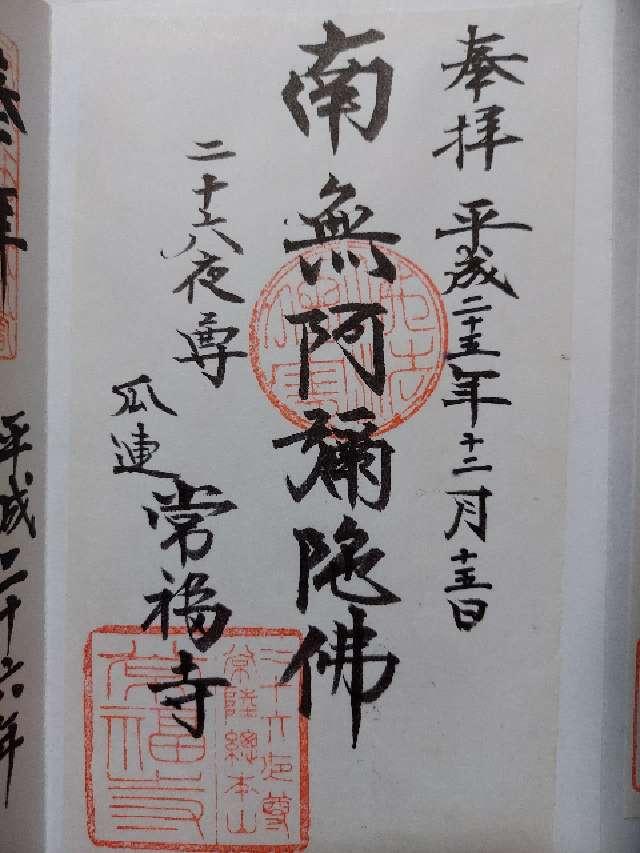 奉拝 平成二十五年十二月十五日
南無阿彌陀佛
二十六夜尊
瓜連 常福寺
二十六夜尊
常陸總本山
常福寺
平成二十六年